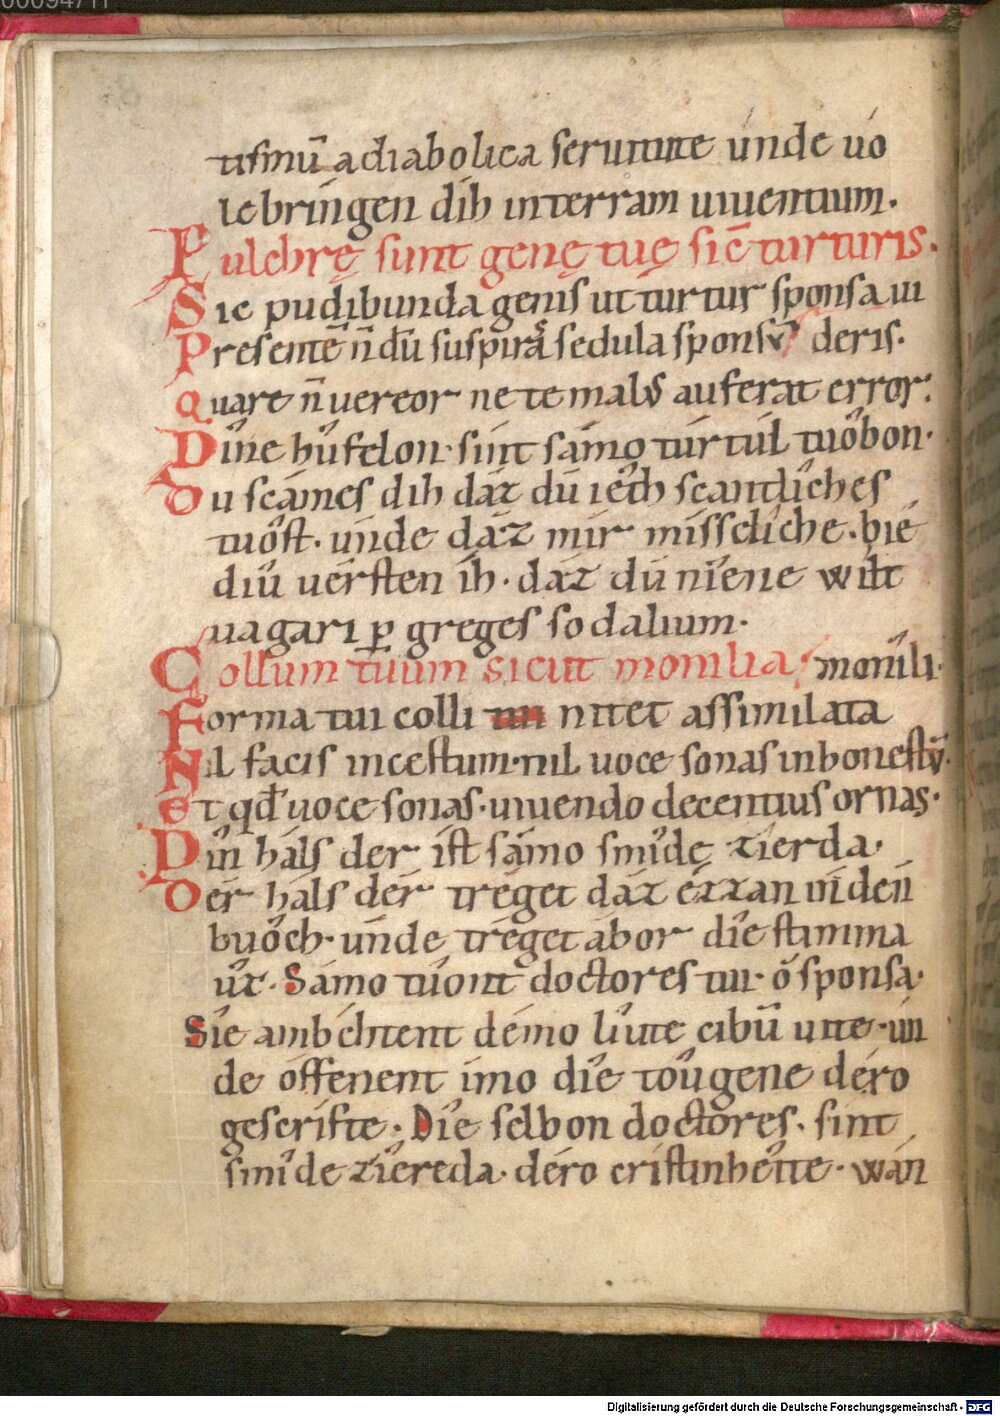 00094711
tismū a diabolica seruitute únde uó
lebríngen díh in terram uiuentium.
Pulchrę sunt genę tuę sic̄ turturis.
Sic pudibunda genis ut turtur sponsa ui
Presentē n̄ dū suspirās sedula sponsū deris.
Quare n̄ uereor ne te malus auferat error.
Dîne hûfelon. sínt sámo túrtul tuôbon.
Du scámes dih dáz dú ieth scantlîches
tuôst. únde dáz mír misselîche. bíe
díu uérsten íh. dáz dú nîene wílt
uagari p̱ greges sodalium.
Collum tuum sicut monilia. moníli.
Forma tui colli nitet assimilata
Nil facis incestum. nil uoce sonas inhonestū.
Et qđ uoce sonas. uiuendo decentius ornas.
Dîn háls der íst sámo smîdę zierda.
Der háls der tréget dáz ézzan in den
buôch. únde tréget ábor dîe stimma
ûz. Sámo tûont doctores tui. ó sponsa.
Sîe ambéhtent démo lîute cibū uitę. ún
de óffenent ímo dîe toûgene déro
gescrífte. Dîe selbon doctores. sínt
smîde zîereda. déro cristinhêite. wán
Digitalisierung gefördert durch die Deutsche Forschungsgemeinschaft - DFG